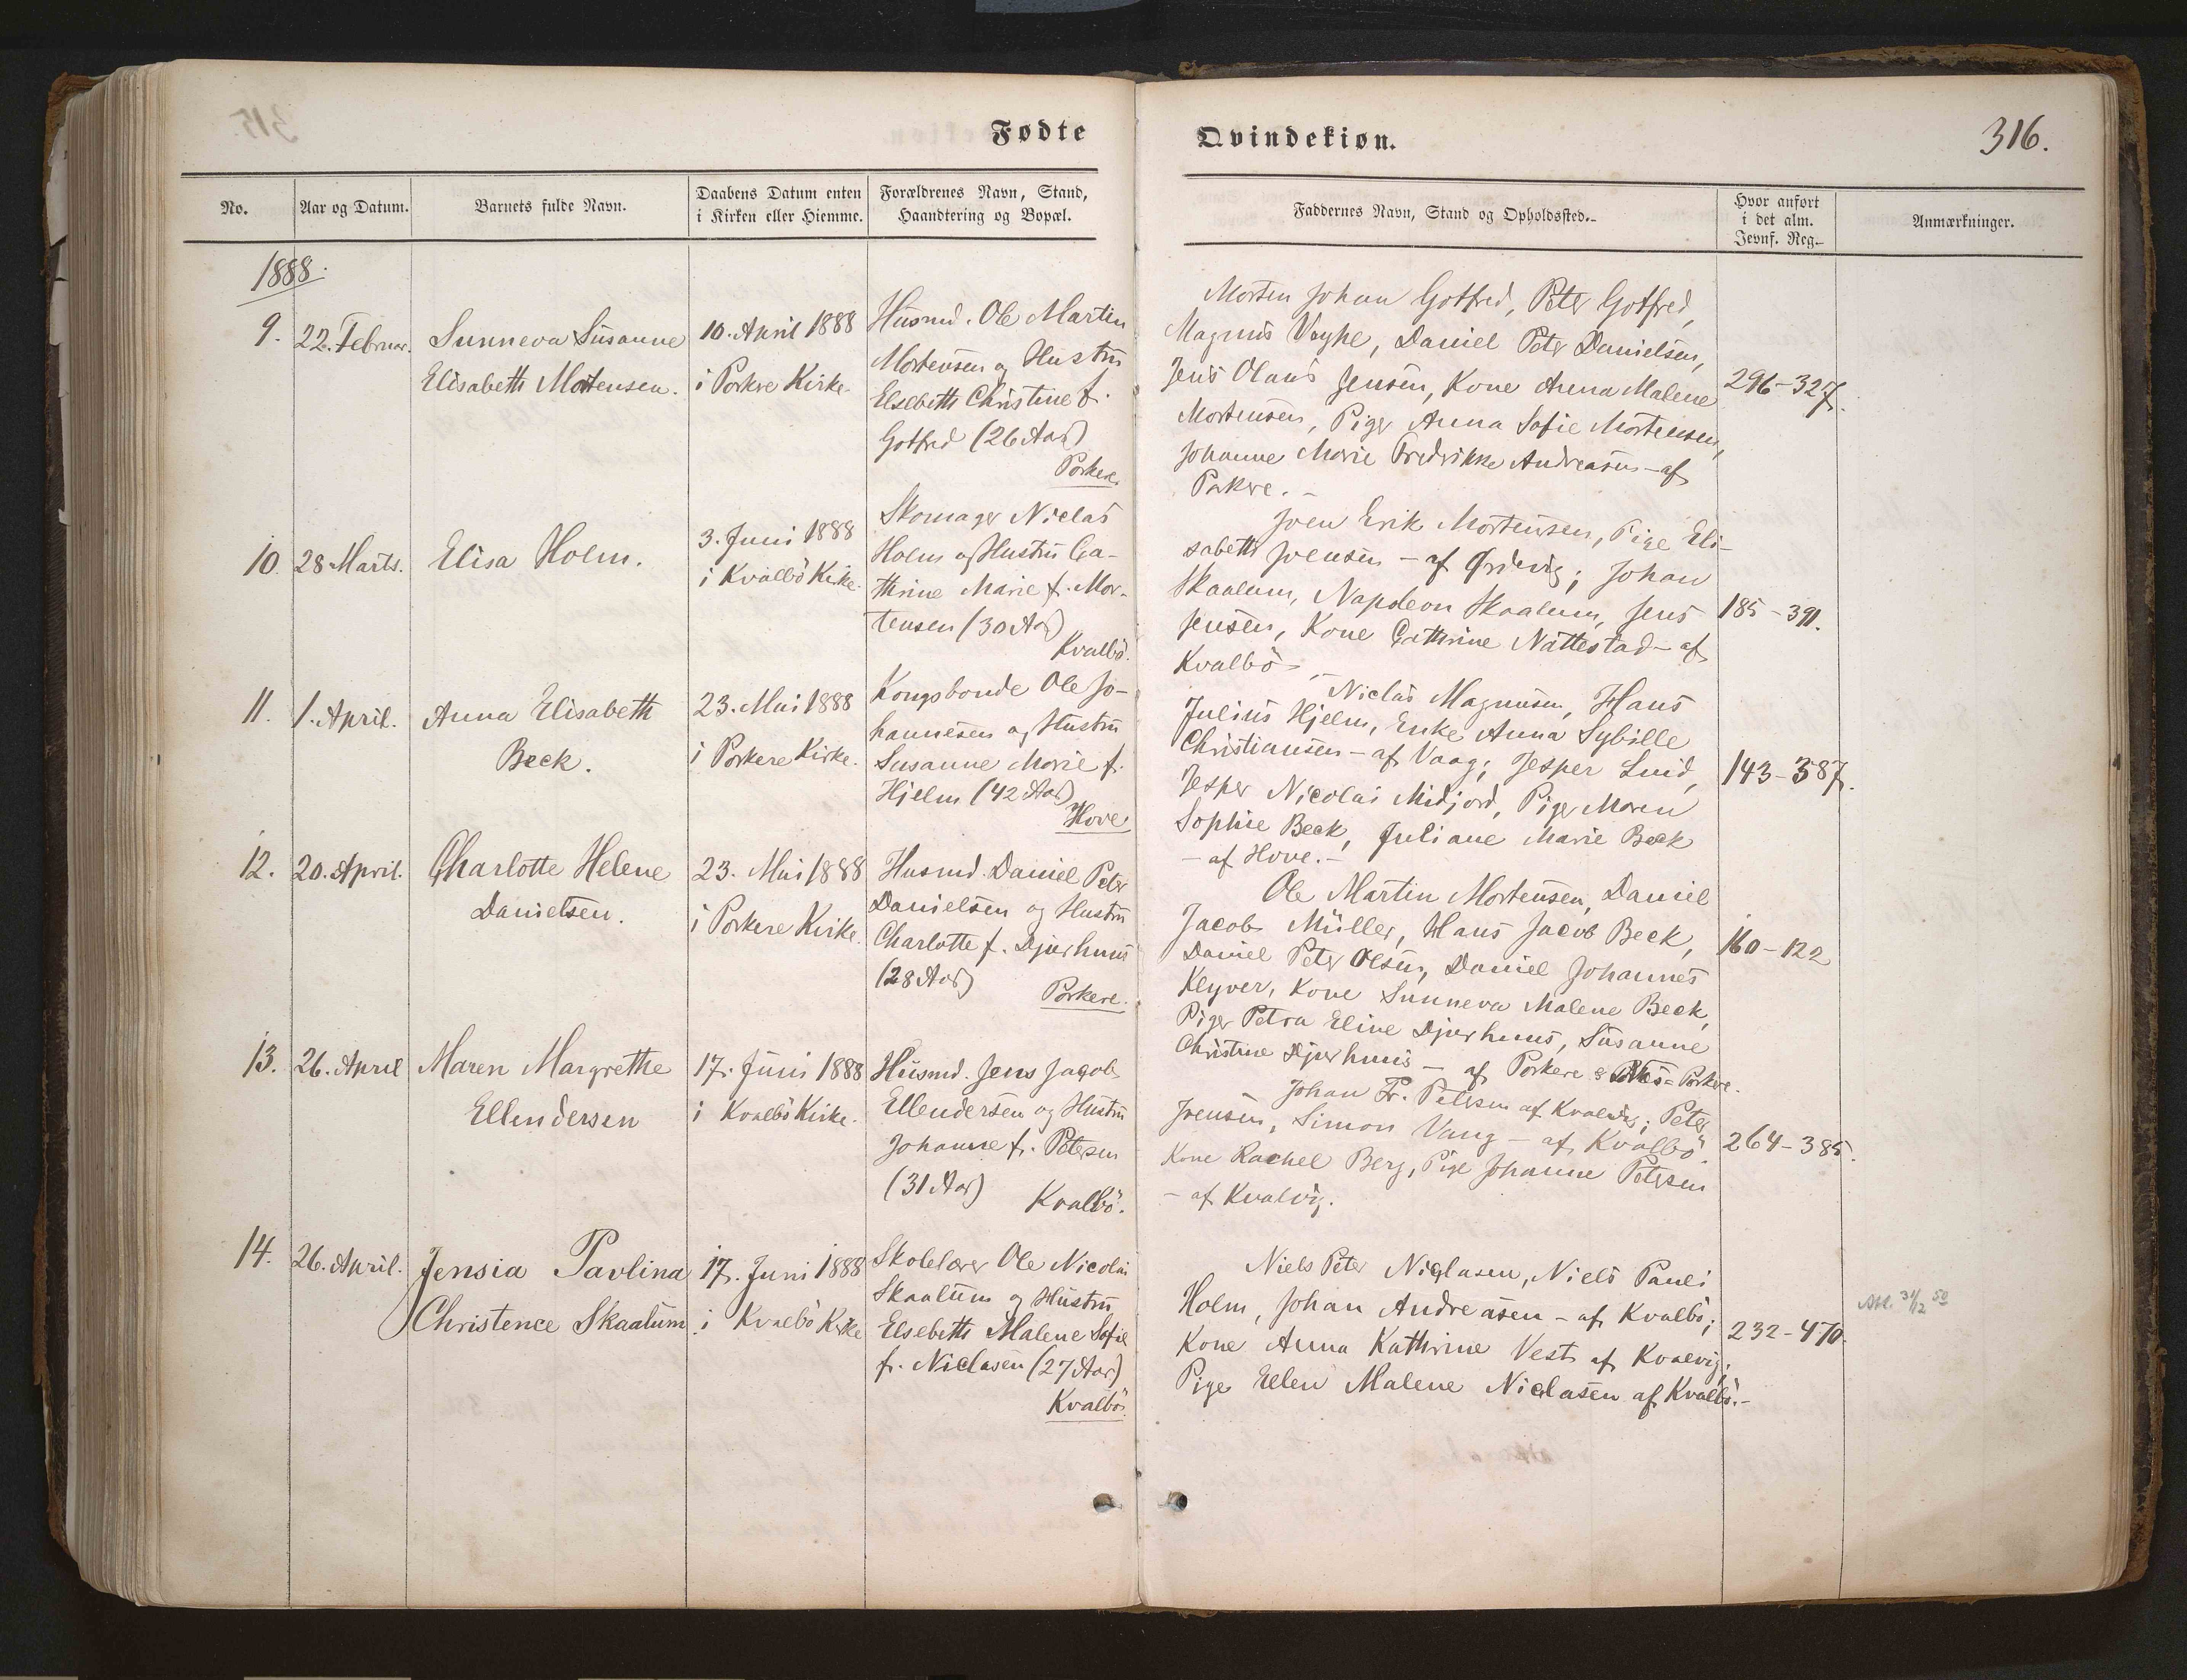 Fødte
Qvindekiøn.
316.
No.
Aar og Datum.
Barnets fulde Navn.
Daabens Datum enten
i Kirken eller Hiemme.
Forældrenes Navn, Stand,
Haandtering og Bopæl.
Faddernes Navn, Stand og Opholdssted.
Hvor anført
i det alm.
Jevnf. Reg.
Anmærkninger.
1888.
9.
22. Februar.
Sunneva Susanne
Elisabeth Mortensen.
10. April 1888
i Porkere Kirke.
Husmd. Ole Martin
Mortensen og Hustru
Elsebeth Christine f.
Gotfred (26 Aar)
Porkere.
Morten Johan Gotfred, Peter Gotfred,
Magnus Vayhe, Daniel Peter Danielsen,
Jens Olaus Jensen, Kone Anna Malene
Mortensen, Piger Anna Sofie Mortensen,
Johanne Marie Fredrikke Andreasen - af
Porkere. -
296-327.
10.
28 Marts.
Elisa Holm.
3. Juni 1888
i Kvalbö Kirke.
Skomager Niclas
Holm og Hustru Ca-
thrine Marie f. Mor-
tensen (30 Aar)
Kvalbö.
Joen Erik Mortensen, Pige Eli-
sabeth Joensen - af Ördevig; Johan
Skaalum, Napoleon Skaalum, Jens
Jensen, Kone Cathrine Nattestad - af
Kvalbö -
185-391.
11.
1. April.
Anna Elisabeth
Beck.
23. Mai 1888
i Porkere Kirke.
Kongsbonde Ole Jo-
hannesen og Hustru
Susanne Marie f.
Hjelm (42 Aar)
Hove
Niclas Magnusen, Hans
Julius Hjelm, Enke Anna Sybille
Christiansen - af Vaag; Jesper Luid,
Jesper Nicolai Midjord, Piger Maren
Sophie Beck, Juliane Marie Beck
- af Hove. -
143-387.
12.
20. April.
Charlotte Helene
Danielsen.
23. Mai 1888
i Porkere Kirke.
Husmd. Daniel Peter
Danielsen og Hustru
Charlotte f. Djurhuus
(28 Aar)
Porkere.
Ole Martin Mortensen, Daniel
Jacob Müller, Hans Jacob Beck,
Daniel Peter Olsen, Daniel Johannes
Kleyver, Kone Sunneva Malene Beck,
Piger Petra Eline Djurhuus, Susanne
Christine Djurhuus - af Porkere & Nes=Porkere.
160-122
13.
26. April
Maren Margrethe
Ellendersen
17. Juni 1888
i Kvalbö Kirke.
Husmd. Jens Jacob
Ellendersen og Hustru
Johanne f. Petersen
(31 Aar)
Kvalbö.
Johan Fr. Petersen af Kvalvig; Peter
Joensen, Simon Vang - af Kvalbö.
Kone Rachel Berg, Pige Johanne Petersen
- af Kvalvig.
264-385.
14.
26. April.
Jensia Pavlina
Christence Skaalum
17. Juni 1888
i Kvalbö Kirke
Skolelærer Ole Nicolai
Skaalum og Hustru
Elsebeth Malene Sofie
f. Niclasen (27 Aar)
Kvalbö.
Niels Peter Niclasen, Niels Pauli
Holm, Johan Andreasen - af Kvalbö;
Kone Anna Kathrine Vest af Kvalvig;
Pige Ellen Malene Niclasen af Kvalbö. -
232-470.
31/12 50